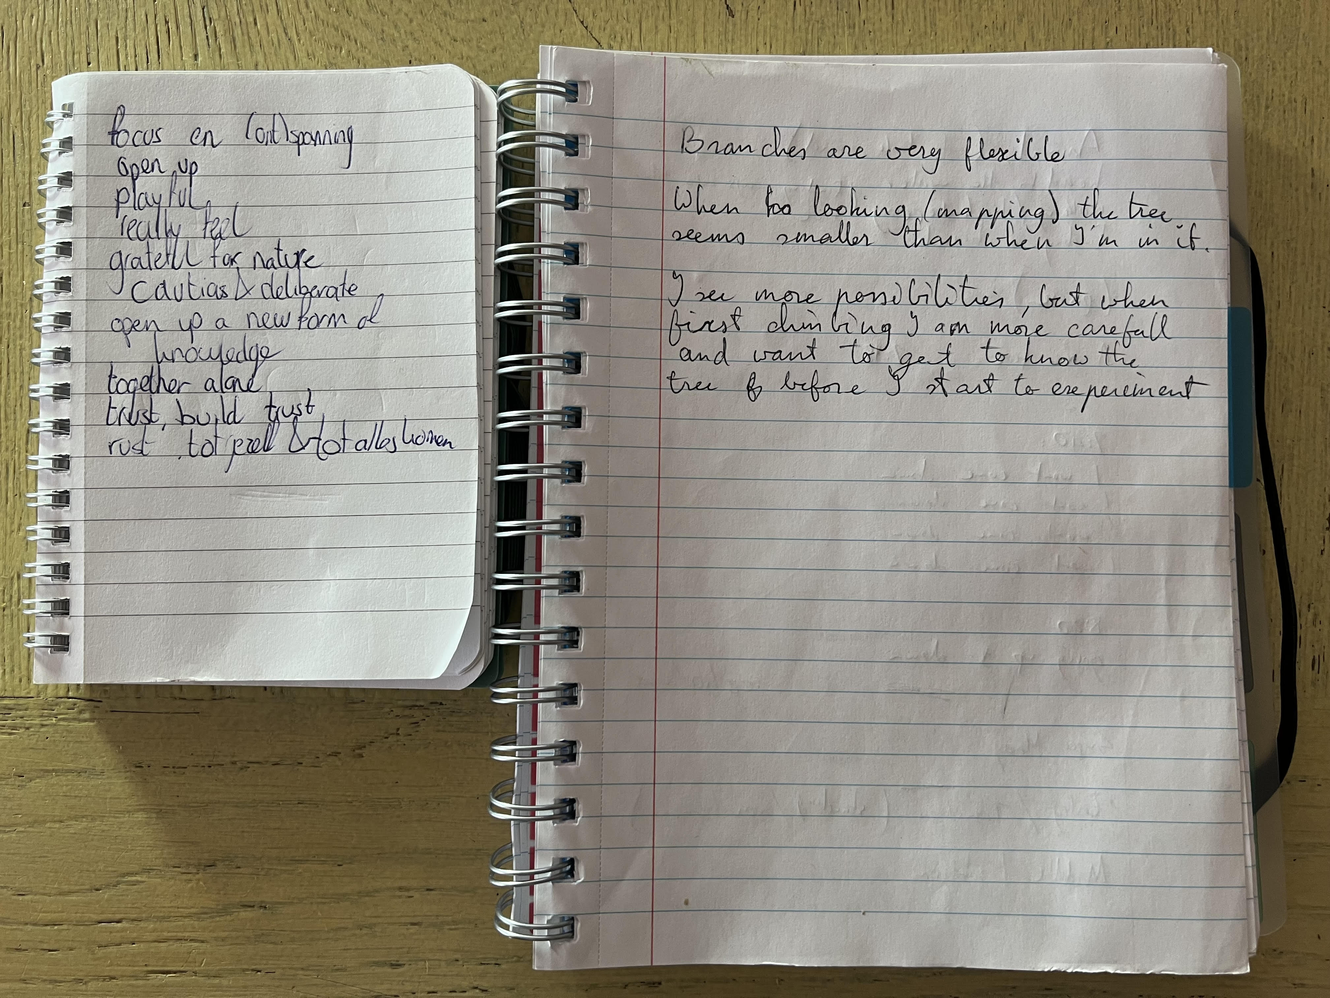 focus en (ont)spanning
open up
playful
really feel
grateful for nature
cautias & deliberate
open up a new form of
knowledge
together alone
trust, build trust
rust tot jezelf & tot alles komen
Branches are very flexible
When too looking (mapping) the tree
seems smaller than when I'm in it.
I see more possibilities, but when
first climbing I am more carefull
and want to get to know the
tree before I start to experiment